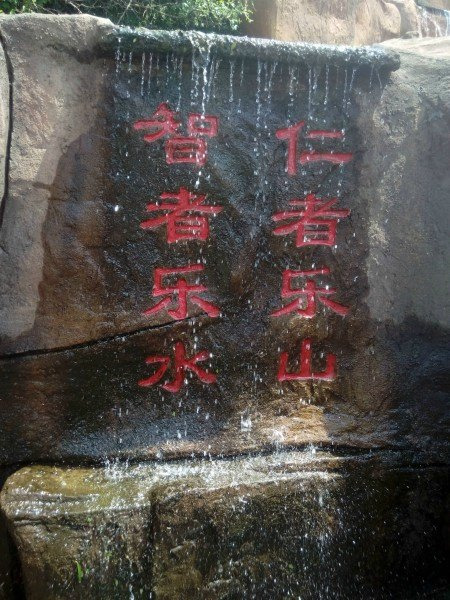 仁者乐山
智者乐水